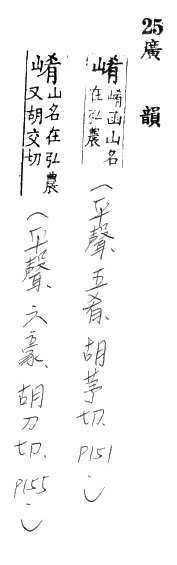 25 廣韻
崤 崤函山名
在弘農
(平聲、五肴、胡茅切. P151.)
崤 山名在弘農
又胡交切
(平聲、六豪、胡刀切. P155.)